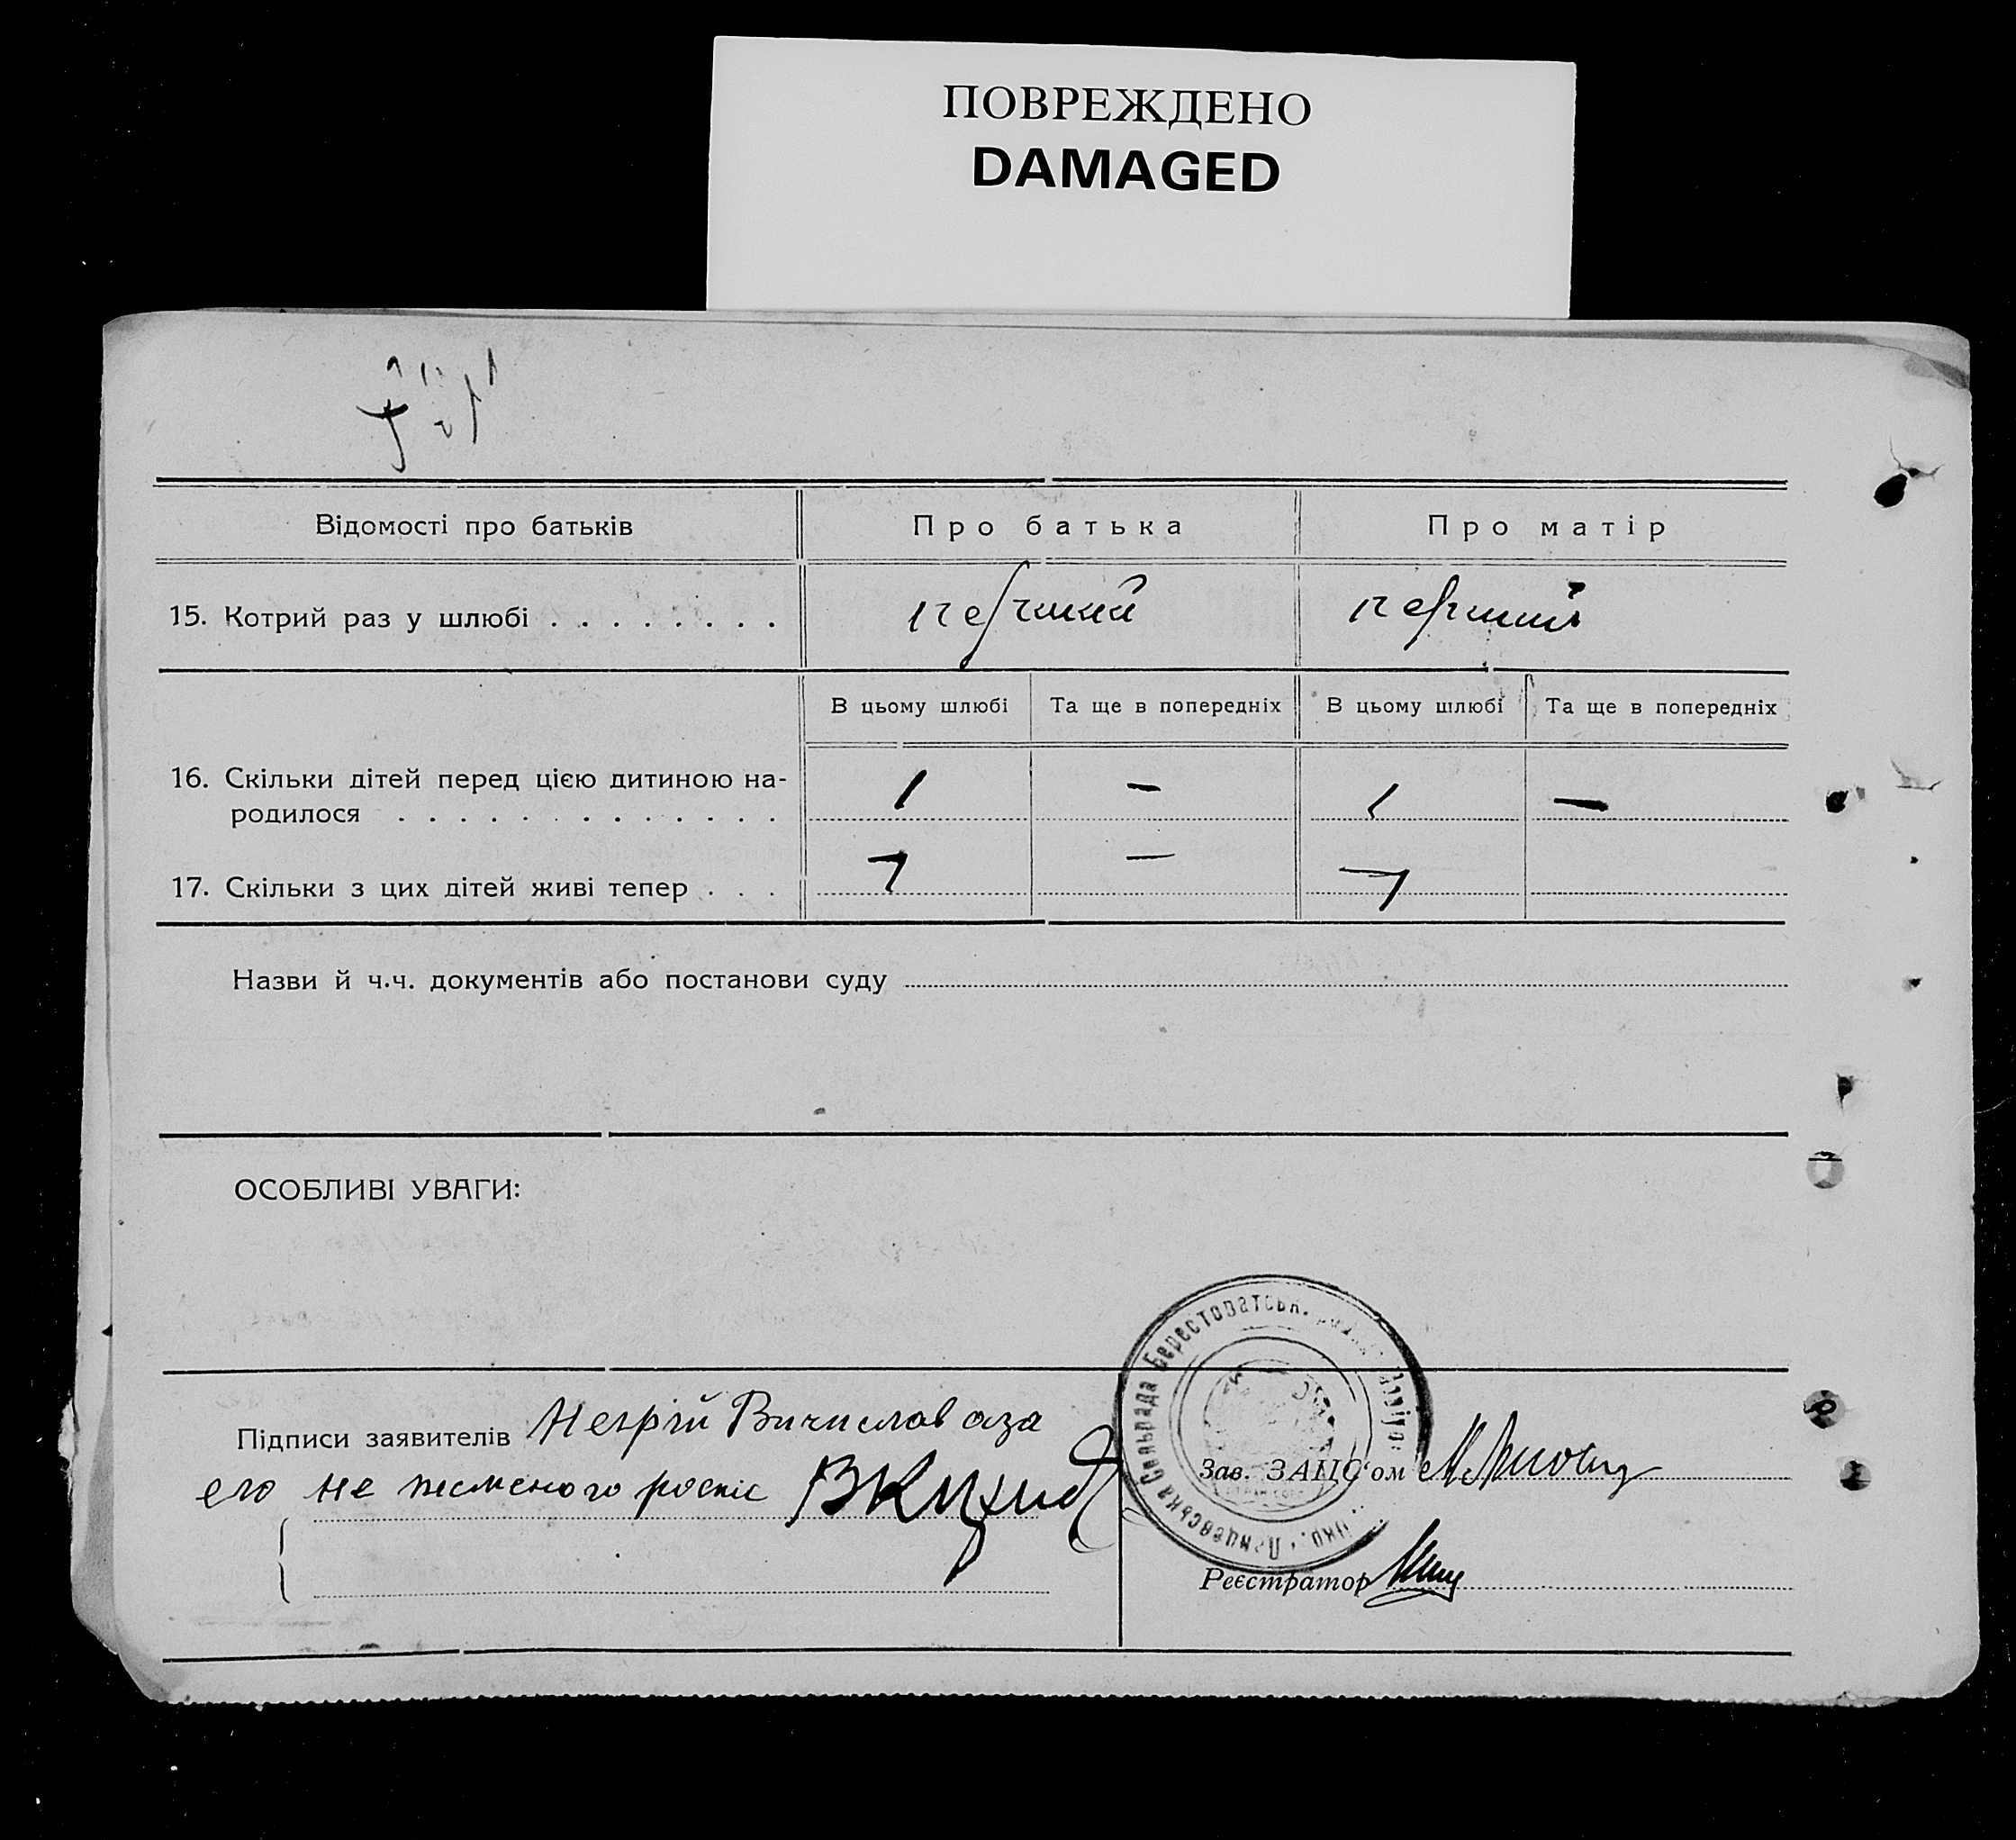 ПОВРЕЖДЕНО
DAMAGED
Відомості про батьків
Про батька
Про матір
15. Котрий раз у шлюбі . . . . . . . .
перший
перший
В цьому шлюбі
Та ще в попередніх
В цьому шлюбі
Та ще в попередніх
16. Скільки дітей перед цією дитиною на-
родилося . . . . . . . . . . . . .
1
—
1
—
17. Скільки з цих дітей живі тепер . . .
1
—
1
Назви й ч.ч. документів або постанови суду
ОСОБЛИВІ УВАГИ:
Підписи заявителів
его не
Сельрада Берестоватськ.
Зав. ЗАГС'ом
Реєстратор